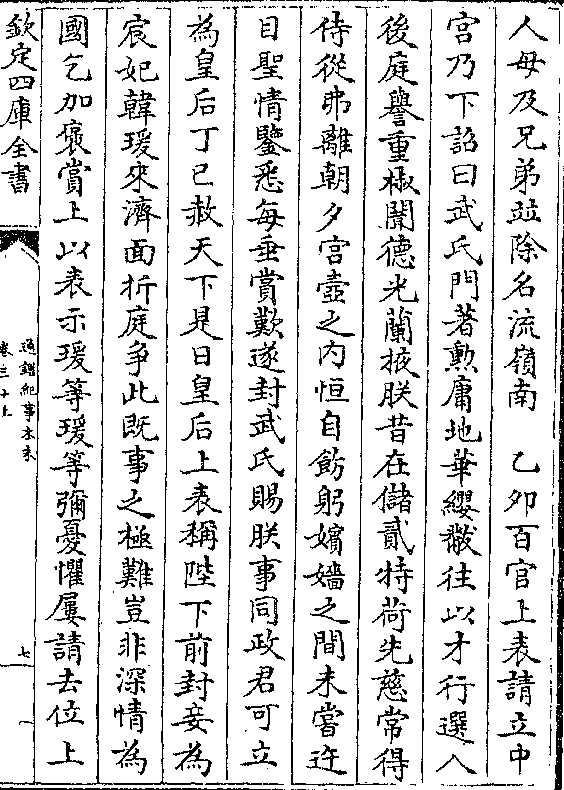 人母及兄弟並除名流嶺南　乙卯百官上表請立中
宮乃下詔曰武氏門著勲庸地華纓黻往以才行選入
後庭譽重椒闈德光蘭掖朕昔在儲貳特荷先慈常得
侍從弗離朝夕宮壼之内恒自飭躬嬪嬙之間未嘗迕
目聖情鑒悉每垂賞歎遂封武氏賜朕事同政君可立
為皇后丁巳赦天下是日皇后上表稱陛下前封妾為
宸妃韓瑗來濟面折庭爭此既事之極難豈非深情為
國乞加褒賞上以表示瑗等瑗等彌憂懼屢請去位上
欽定四庫全書
通鑑紀事本末
卷三十上
七